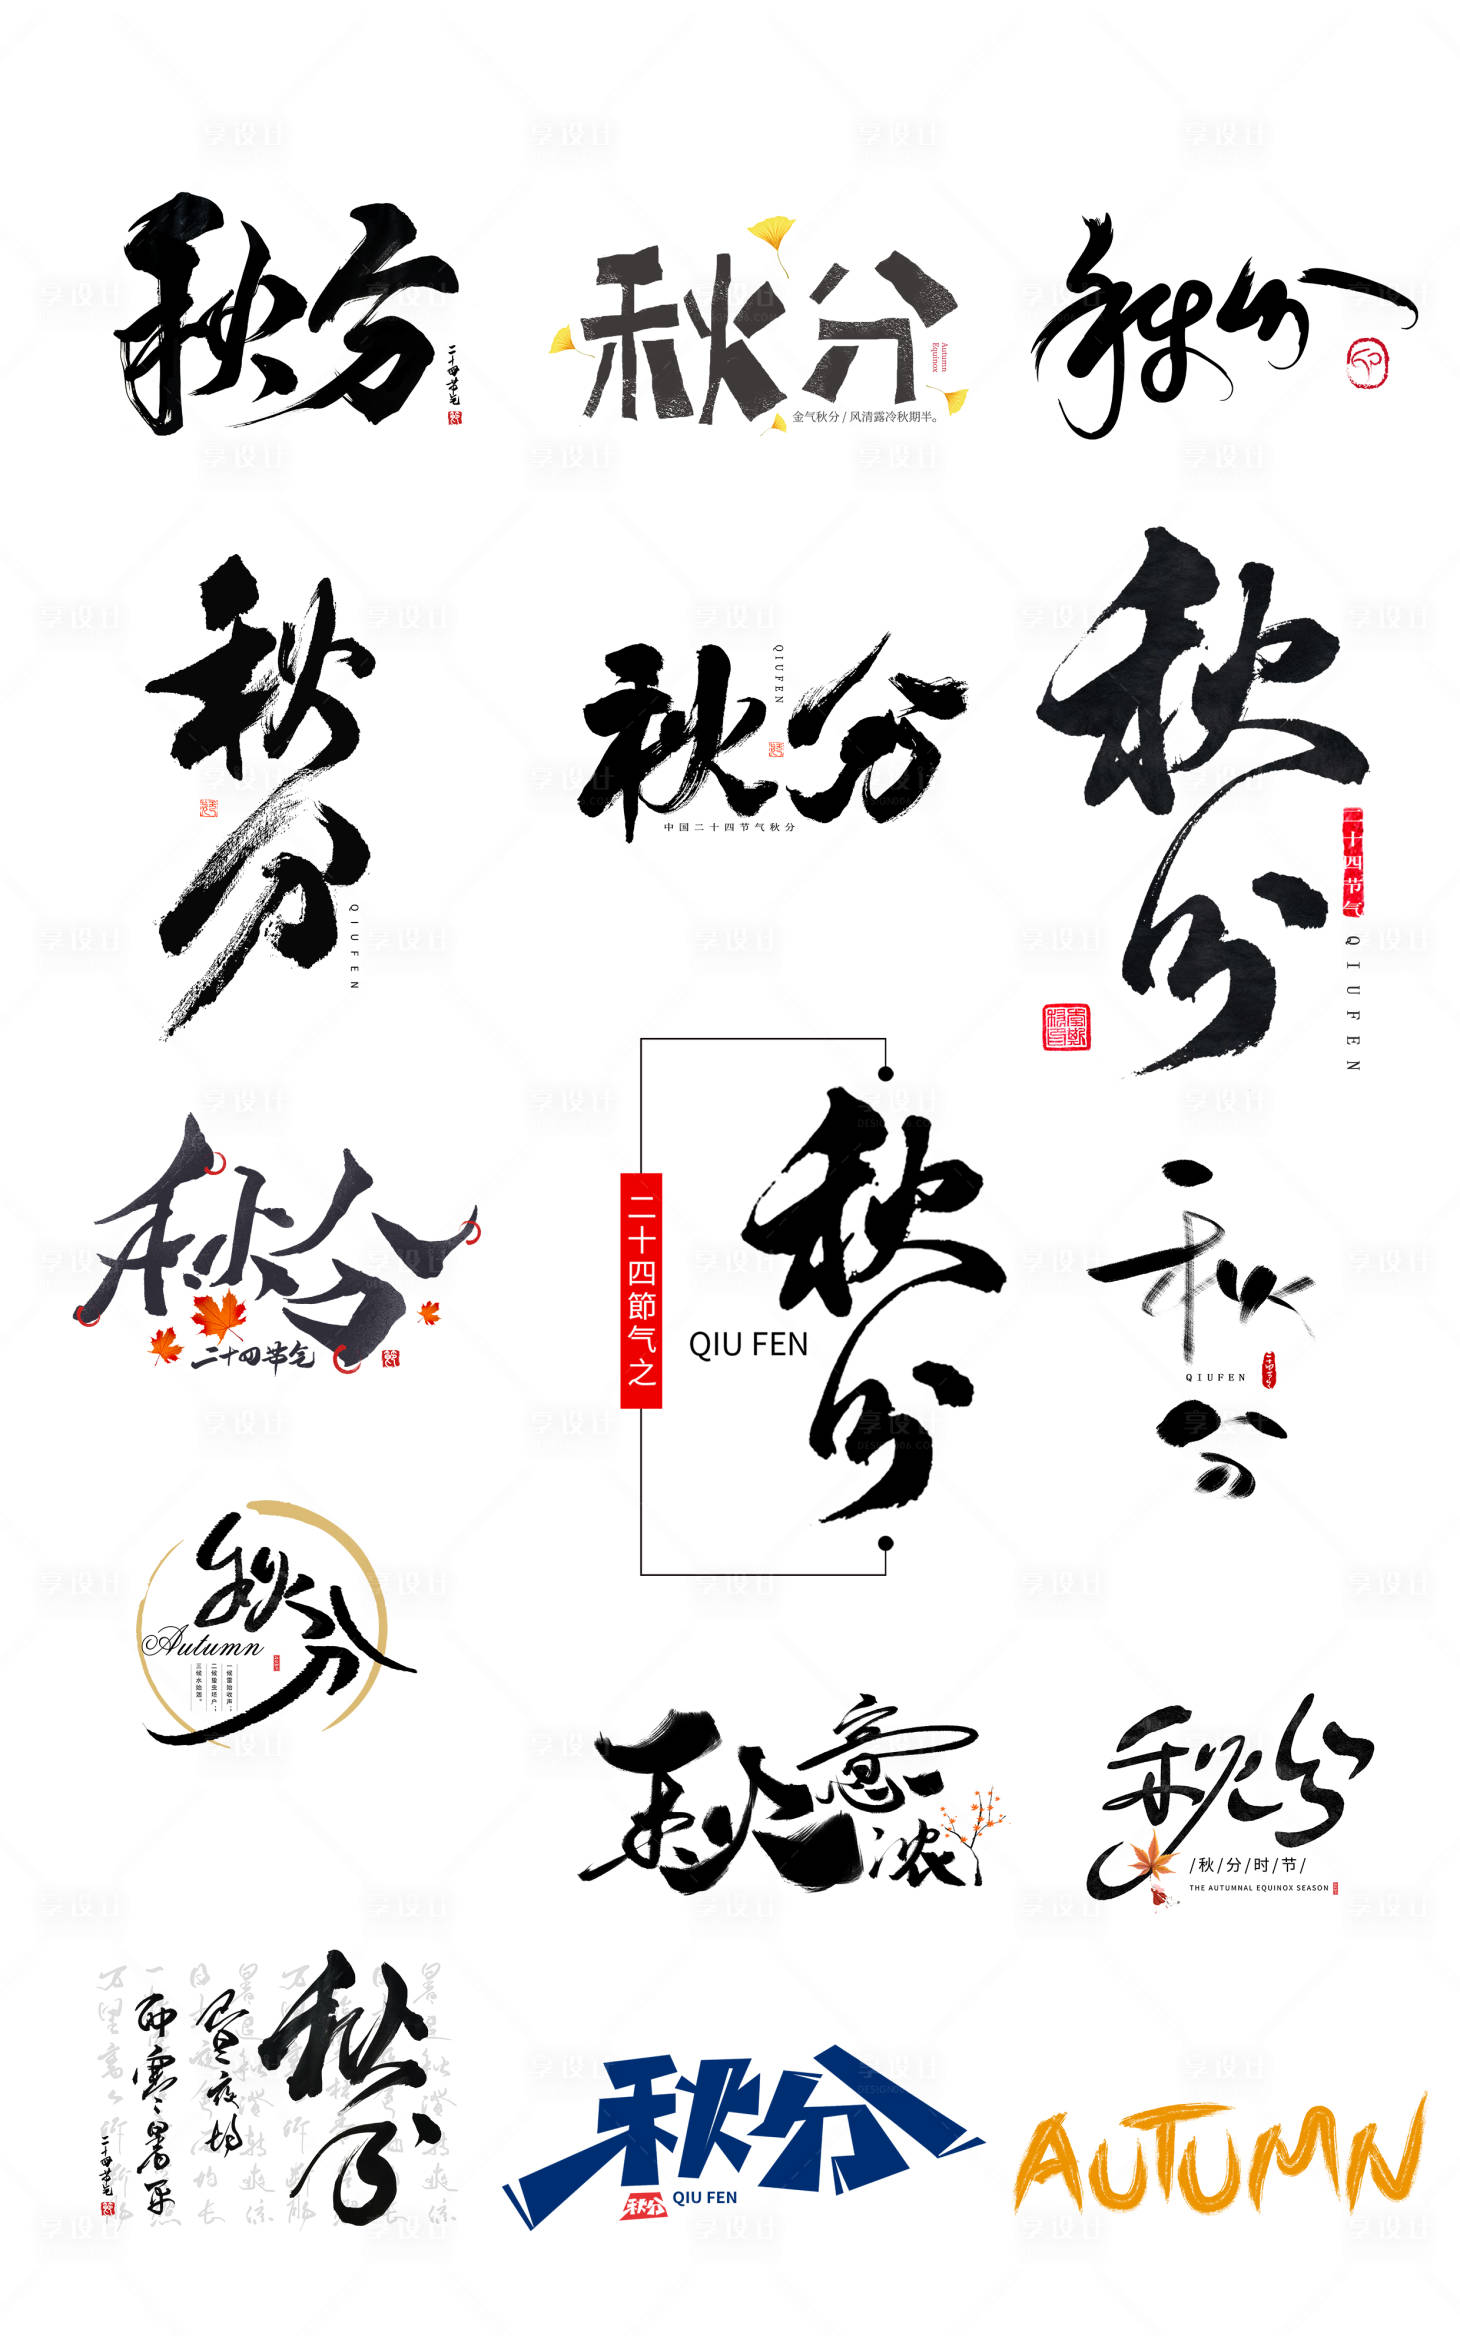 秋分
二十四节气
秋分
Autumn
Equinox
金气秋分 / 风清露冷秋期半。
秋分
秋分
QIUFEN
秋分
QIUFEN
中国二十四节气秋分
秋分
二十四节气
QIUFEN
秋分
二十四节气
二十四節气之
秋分
QIU FEN
秋分
QIUFEN
二十四节气
秋分
Autumn
一候雷始收声；
二候蛰虫坯户；
三候水始涸。
秋意浓
秋分
/秋/分/时/节/
THE AUTUMNAL EQUINOX SEASON
秋分
昼夜均
而寒暑平
二十四节气
秋分
秋分
QIU FEN
AUTUMN